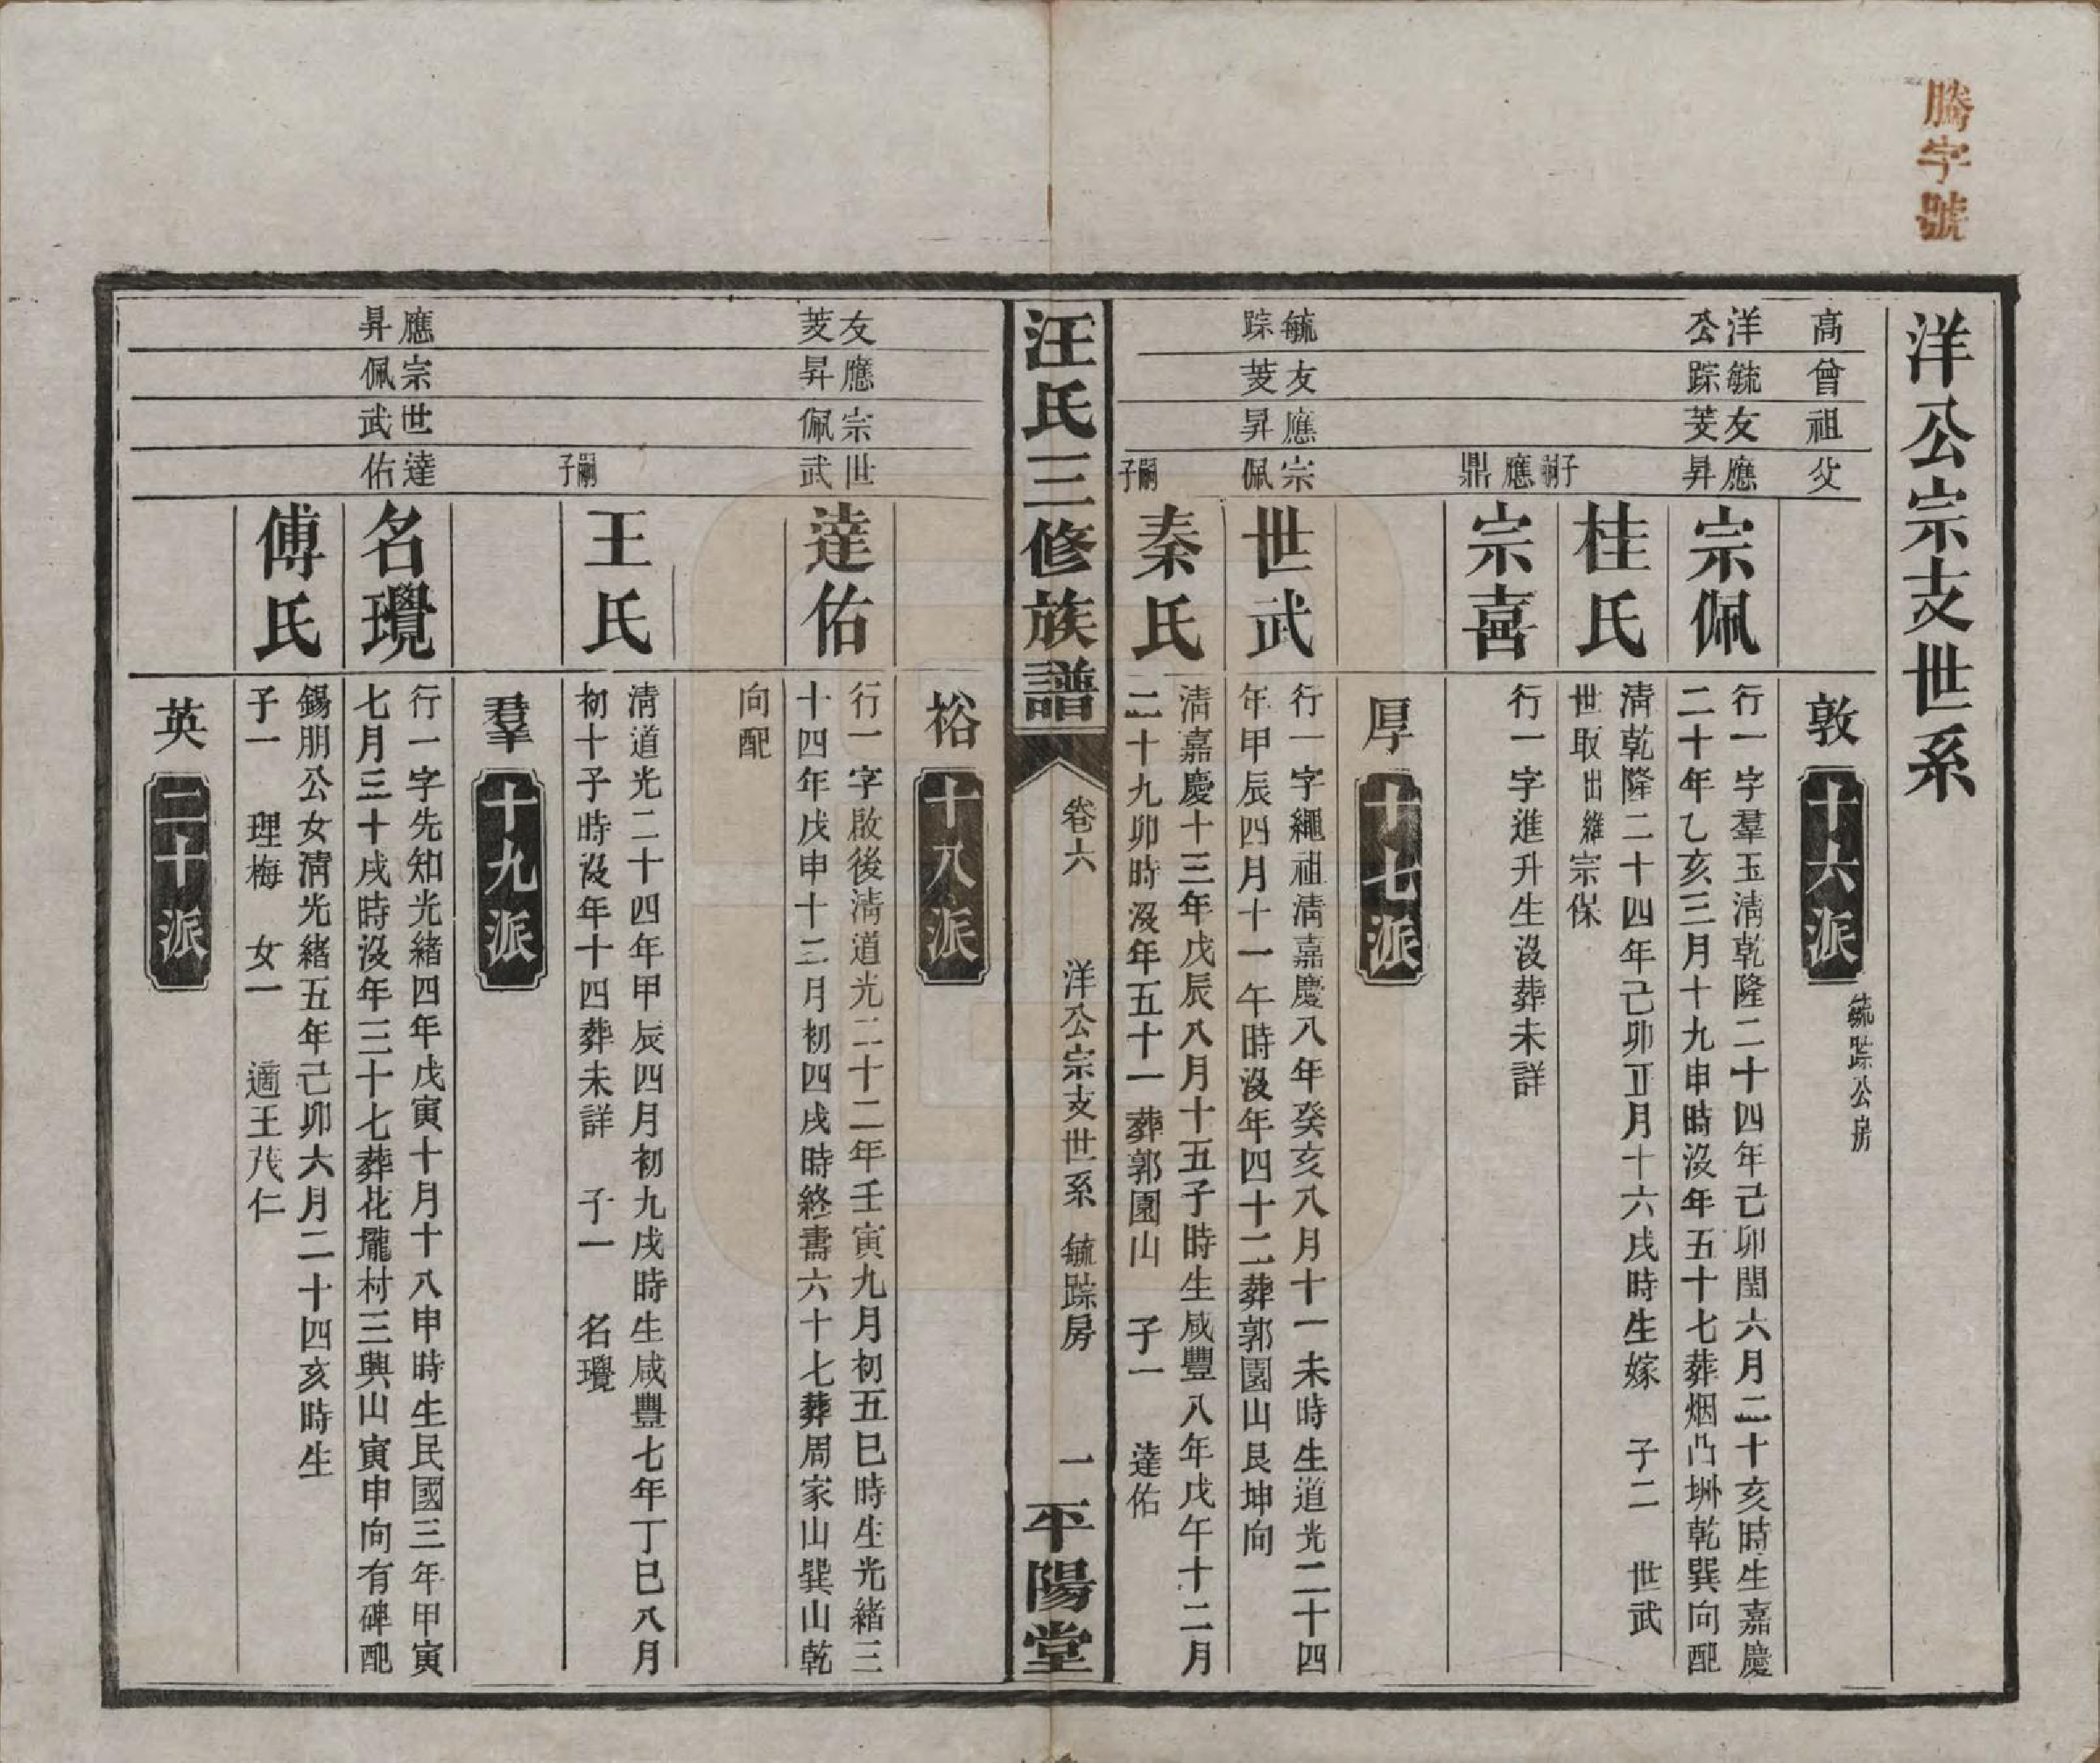 騰字號
洋公宗支世系
高
曾
祖
父
敦
十六派
毓踪公房
洋公
毓踪
友芰
應昇
宗佩
行一字羣玉清乾隆二十四年己卯閏六月二十亥時生嘉慶
二十年乙亥三月十九申時沒年五十七葬烟凸坳乾巽向配
桂氏
清乾隆二十四年己卯正月十六戌時生嫁 子二 世武
世取出繼宗保
應鼎嗣子
宗喜
行一字進升生沒葬未詳
厚
十七派
毓踪
友芰
應昇
宗佩
世武
行一字繩祖清嘉慶八年癸亥八月十一未時生道光二十四
年甲辰四月十一午時沒年四十二葬郭園山艮坤向
嗣子
秦氏
清嘉慶十三年戊辰八月十五子時生咸豐八年戊午十二月
二十九卯時沒年五十一葬郭園山 子一 達佑
汪氏三修族譜
卷六
洋公宗支世系 毓踪房
一
平陽堂
裕
十八派
友芰
應昇
宗佩
世武
達佑
行一字啟後清道光二十二年壬寅九月初五巳時生光緒三
十四年戊申十二月初四戌時終壽六十七葬周家山巽山乾
向配
嗣子
王氏
清道光二十四年甲辰四月初九戌時生咸豐七年丁巳八月
初十子時沒年十四葬未詳 子一 名璺
羣
十九派
應昇
宗佩
世武
達佑
名璺
行一字先知光緒四年戊寅十月十八申時生民國三年甲寅
七月三十戌時沒年三十七葬花壠村三興山寅申向有碑配
傅氏
錫朋公女清光緒五年己卯六月二十四亥時生
子一 理梅 女一 適王茂仁
英
二十派